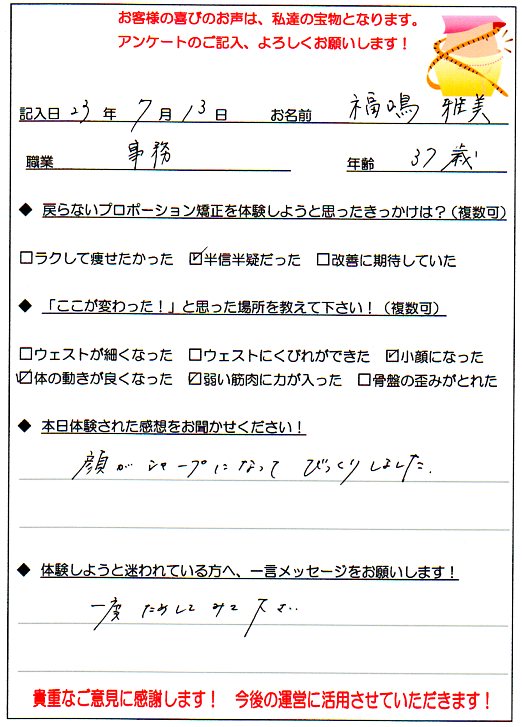 お客様の喜びのお声は、私達の宝物となります。
アンケートのご記入、よろしくお願いします！
記入日 23 年 7 月 13 日 お名前 福嶋 雅美
職業 事務 年齢 37歳
◆ 戻らないプロポーション矯正を体験しようと思ったきっかけは？（複数可）
□ラクして痩せたかった ☑半信半疑だった □改善に期待していた
◆ 「ここが変わった！」と思った場所を教えて下さい！（複数可）
□ウェストが細くなった □ウェストにくびれができた ☑小顔になった
☑体の動きが良くなった ☑弱い筋肉に力が入った □骨盤の歪みがとれた
◆ 本日体験された感想をお聞かせください！
顔がシャープになってびっくりしました。
◆ 体験しようと迷われている方へ、一言メッセージをお願いします！
一度ためしてみて下さい
貴重なご意見に感謝します！ 今後の運営に活用させていただきます！